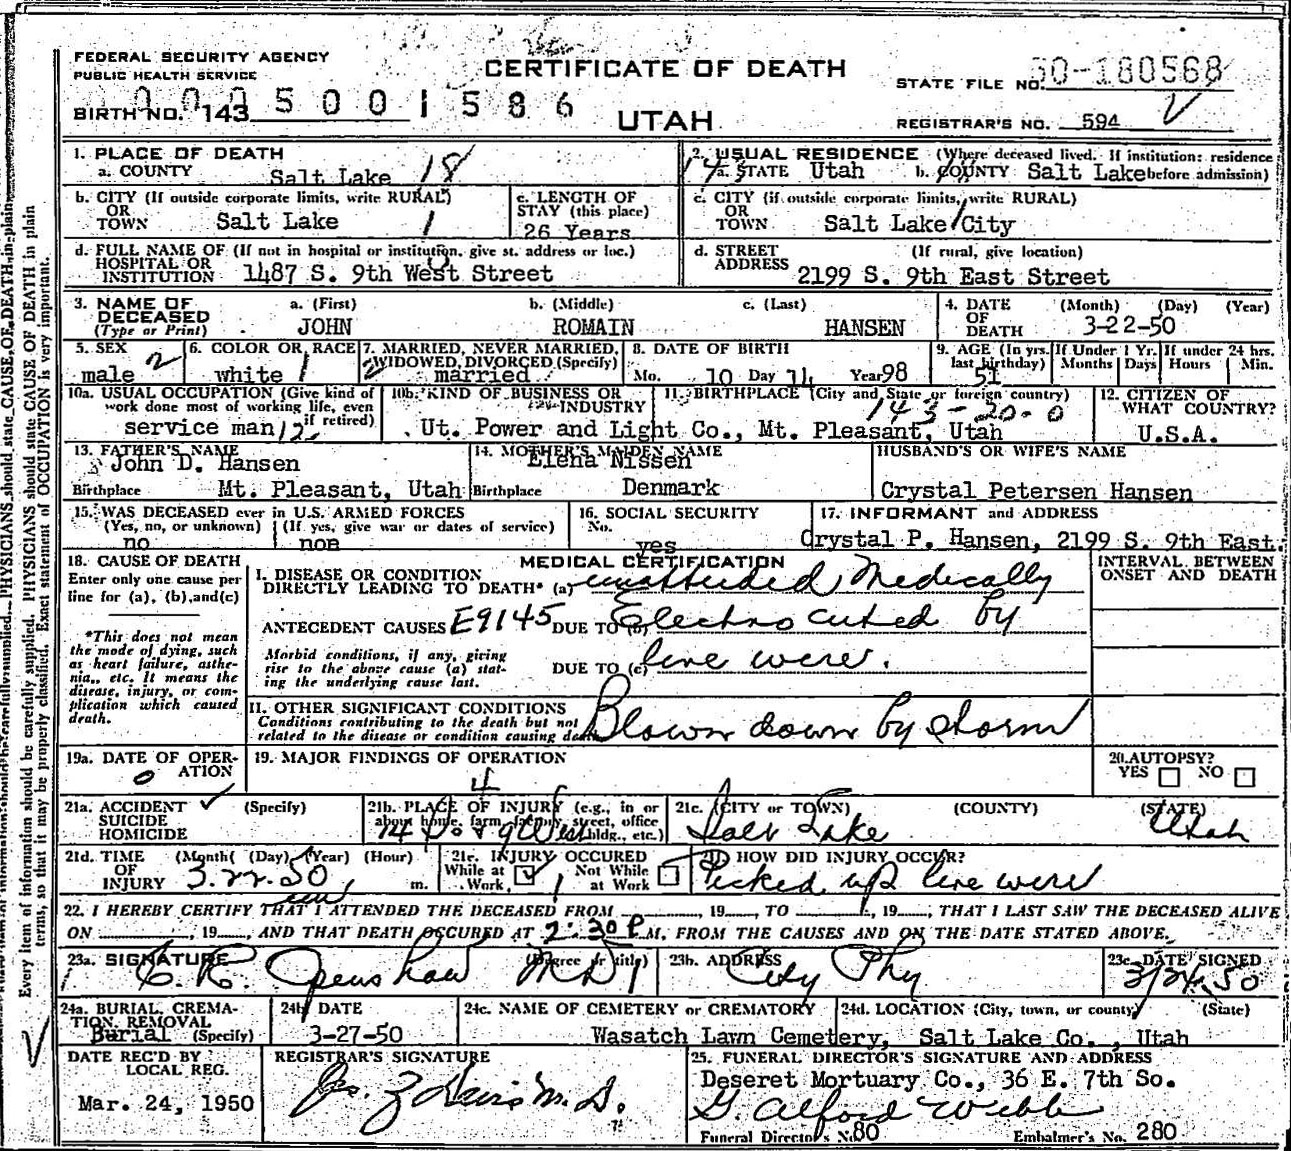 FEDERAL SECURITY AGENCY
PUBLIC HEALTH SERVICE
CERTIFICATE OF DEATH
UTAH
STATE FILE NO. 50-180568
BIRTH NO. 143
0005001586
REGISTRAR'S NO. 594
1. PLACE OF DEATH
a. COUNTY Salt Lake 18
2. USUAL RESIDENCE (Where deceased lived. If institution: residence before admission)
a. STATE Utah b. COUNTY Salt Lake
b. CITY (If outside corporate limits, write RURAL) OR TOWN Salt Lake 1
c. LENGTH OF STAY (this place) 26 Years
c. CITY (if outside corporate limits, write RURAL) OR TOWN Salt Lake City
d. FULL NAME OF HOSPITAL OR INSTITUTION (If not in hospital or institution, give st. address or loc.) 1487 S. 9th West Street
d. STREET ADDRESS (If rural, give location) 2199 S. 9th East Street
3. NAME OF DECEASED (Type or Print)
a. (First) JOHN b. (Middle) ROMAIN c. (Last) HANSEN
4. DATE OF DEATH (Month) (Day) (Year) 3-22-50
5. SEX male 2
6. COLOR OR RACE white 1
7. MARRIED, NEVER MARRIED, WIDOWED, DIVORCED (Specify) 2 married
8. DATE OF BIRTH Mo. 10 Day 14 Year 98
9. AGE (In yrs. last birthday) 51
If Under 1 Yr. Months Days
If under 24 hrs. Hours Min.
10a. USUAL OCCUPATION (Give kind of work done most of working life, even if retired) service man 12
10b. KIND OF BUSINESS OR INDUSTRY Ut. Power and Light Co.,
11. BIRTHPLACE (City and State or foreign country) 143-20-0
Mt. Pleasant, Utah
12. CITIZEN OF WHAT COUNTRY? U.S.A.
13. FATHER'S NAME John D. Hansen
Birthplace Mt. Pleasant, Utah
14. MOTHER'S MAIDEN NAME Elena Nissen
Birthplace Denmark
HUSBAND'S OR WIFE'S NAME
Crystal Petersen Hansen
15. WAS DECEASED ever in U.S. ARMED FORCES
(Yes, no, or unknown) no (If yes, give war or dates of service) non
16. SOCIAL SECURITY No. yes
17. INFORMANT and ADDRESS
Crystal P. Hansen, 2199 S. 9th East.
18. CAUSE OF DEATH
Enter only one cause per line for (a), (b), and (c)
*This does not mean the mode of dying, such as heart failure, asthenia, etc. It means the disease, injury, or complication which caused death.
MEDICAL CERTIFICATION
INTERVAL BETWEEN ONSET AND DEATH
I. DISEASE OR CONDITION DIRECTLY LEADING TO DEATH* (a) unattended Medically
ANTECEDENT CAUSES E9145 DUE TO (b) Electrocuted by
Morbid conditions, if any, giving rise to the above cause (a) stating the underlying cause last.
DUE TO (c) live were.
II. OTHER SIGNIFICANT CONDITIONS
Conditions contributing to the death but not related to the disease or condition causing death
Blown down by storm
19a. DATE OF OPERATION 0
19. MAJOR FINDINGS OF OPERATION
4
20. AUTOPSY?
YES NO
21a. ACCIDENT ✓ (Specify)
SUICIDE
HOMICIDE
21b. PLACE OF INJURY (e.g., in or about home, farm, factory, street, office bldg., etc.) 14 So & 9 West
21c. (CITY or TOWN) (COUNTY) (STATE)
Salt Lake Utah
21d. TIME OF INJURY (Month) (Day) (Year) (Hour) 3-22-50 m.
21e. INJURY OCCURED
While at Work ✓ Not While at Work
21f. HOW DID INJURY OCCUR?
Picked up live were
22. I HEREBY CERTIFY THAT I ATTENDED THE DECEASED FROM , 19 , TO , 19 , THAT I LAST SAW THE DECEASED ALIVE
ON , 19 , AND THAT DEATH OCCURED AT 2:30 P.M. FROM THE CAUSES AND ON THE DATE STATED ABOVE.
23a. SIGNATURE (Degree or title) C. R. Openshaw MD
23b. ADDRESS City Phy
23c. DATE SIGNED 3/24/50
24a. BURIAL, CREMATION, REMOVAL (Specify) Burial
24b. DATE 3-27-50
24c. NAME OF CEMETERY or CREMATORY Wasatch Lawn Cemetery,
24d. LOCATION (City, town, or county) (State) Salt Lake Co., Utah
DATE REC'D BY LOCAL REG.
Mar. 24, 1950
REGISTRAR'S SIGNATURE
25. FUNERAL DIRECTOR'S SIGNATURE AND ADDRESS
Deseret Mortuary Co., 36 E. 7th So.
G. Alford Webb
Funeral Director's No. 80 Embalmer's No. 280
Every item of information should be carefully supplied. PHYSICIANS should state CAUSE OF DEATH in plain
terms, so that it may be properly classified. Exact statement of OCCUPATION is very important.